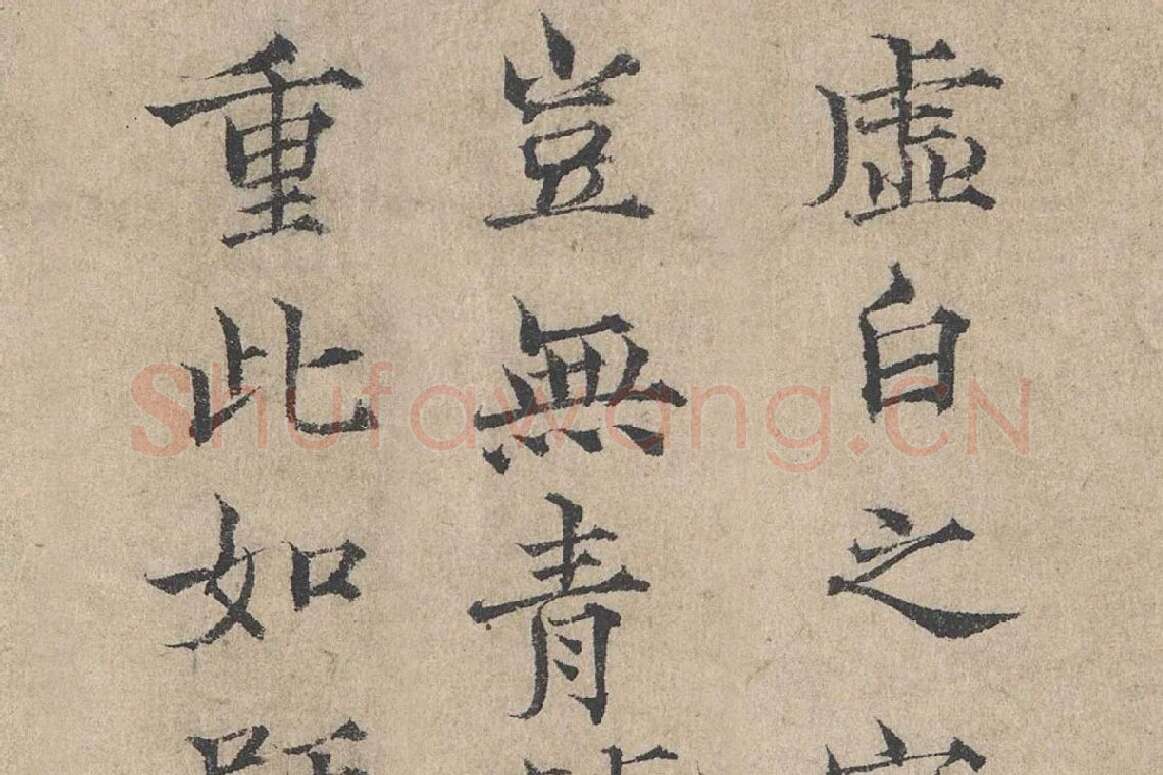 虛白之
豈無青
重此如
Shufawang.CN